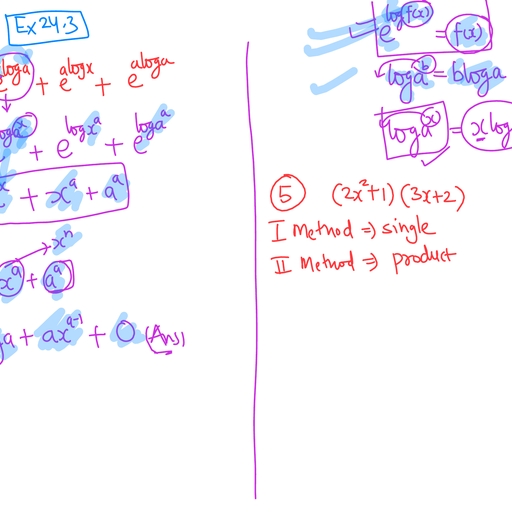 Ex 24.3
e^{xloga} + e^{alogx} + e^{aloga}
+ e^{logx^a} + e^{loga^a}
+ x^a + a^a
x^n
x^a + a^a
a + ax^{a-1} + 0 (Ans)
e^{logf(x)} = f(x)
loga^b = bloga
loga^{(x)} = xlog
5 (2x²+1) (3x+2)
I Method ⇒ single
II Method ⇒ product